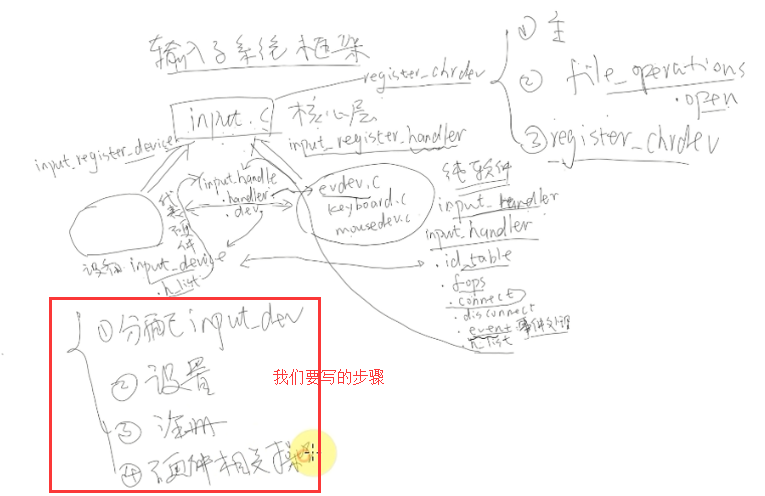 输入子系统框架
register_chrdev
① 主
② file_operations
.open
③ register_chrdev
input.c 核心层
input_register_handler
input_register_device
input_handle
.handler
.dev
代表硬件
设备 input_device
.h_list
evdev.c
keyboard.c
mousedev.c
纯软件
input_handler
input_handler
.id_table
.fops
.connect
.disconnect
.event 事件处理
.h_list
① 分配 input_dev
② 设置
③ 注册
④ 硬件相关操
我们要写的步骤